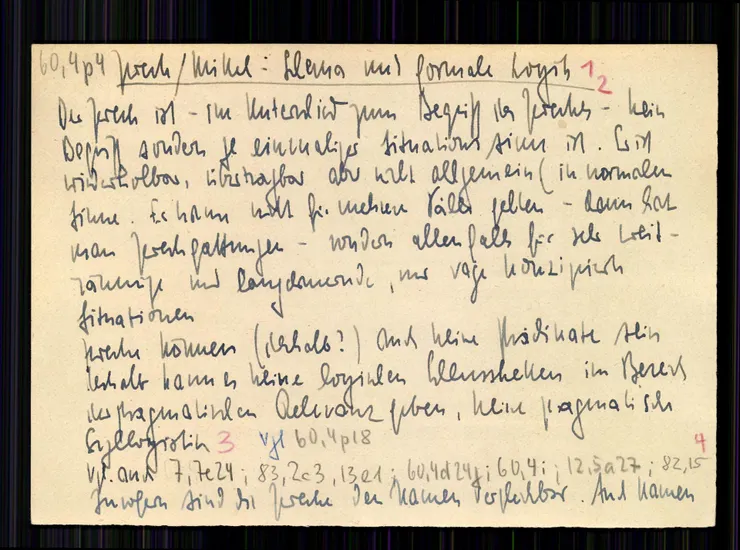 60,4p4 Zweck/Mittel-Schema und formale Logik 1 2
Der Zweck ist - im Unterschied zum Begriff des Zweckes - kein
Begriff sondern je einmaliger Situationssinn ist. Er ist
wiederholbar, übertragbar aber nicht allgemein (im normalen
Sinne. Er kann nicht für mehrere Fälle gelten - dann hat
man Zweckgattungen - sondern allenfalls für sehr weit-
räumige und langdauernde, nur vage konzipierte
Situationen
Zwecke können (deshalb?) auch keine Prädikate sein
deshalb kann es keine logischen Schlussketten im Bereich
der pragmatischen Relevanz geben, keine pragmatische
Syllogistik 3 Vgl 60,4p18
Vgl. auch 7,7e24; 83,2c3, 13e1; 60,4d24g; 60,4i; 12,5a27; 82,15 4
Inwiefern sind die Zwecke den Namen vergleichbar. Auch Namen